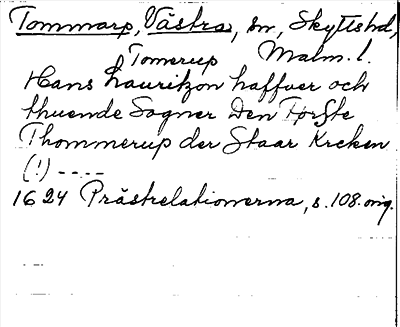 Tommarp, Västra, sn, Skyttshd,
Tomerup Malm. l.
Hans Lauritzon haffuer och
thuende Sogner Den Første
Thommerup der Staar Krcken
(!) ----
1624 Prästrelationerna, s. 108. orig.